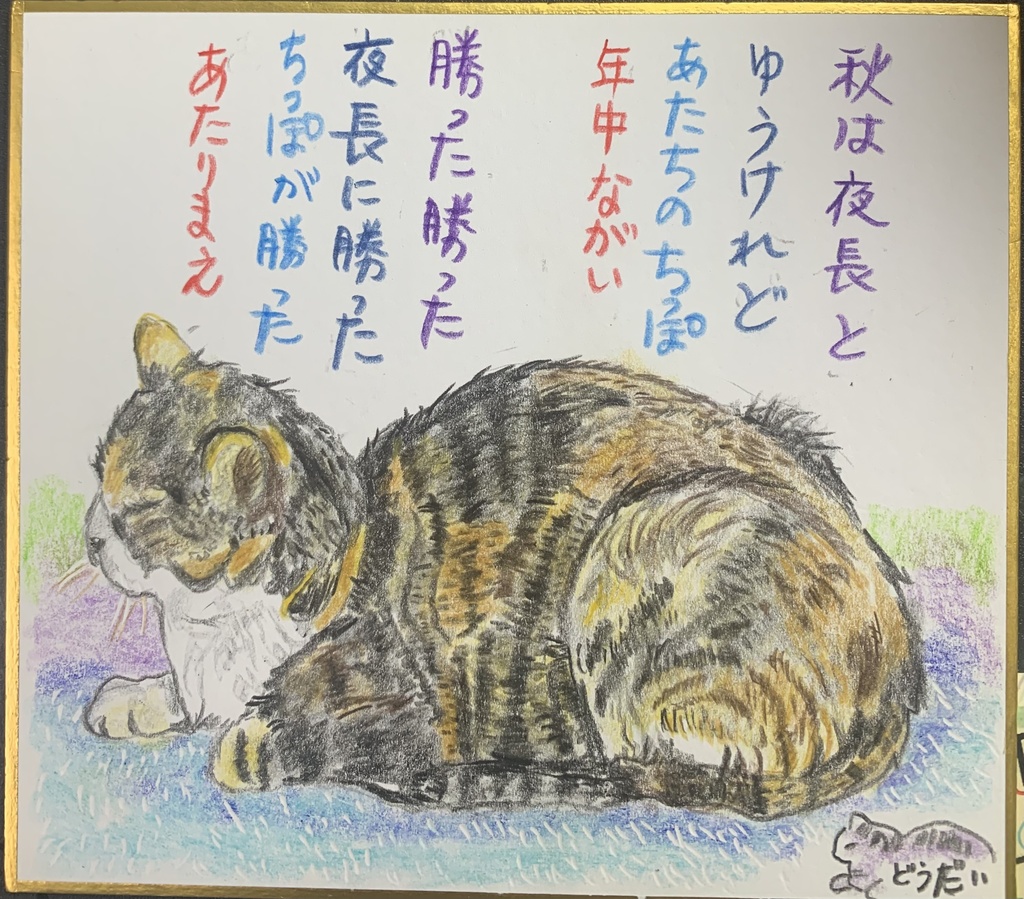 秋は夜長と
ゆうけれど
あたちのちっぽ
年中ながい
勝った勝った
夜長に勝った
ちっぽが勝った
あたりまえ
どうだい